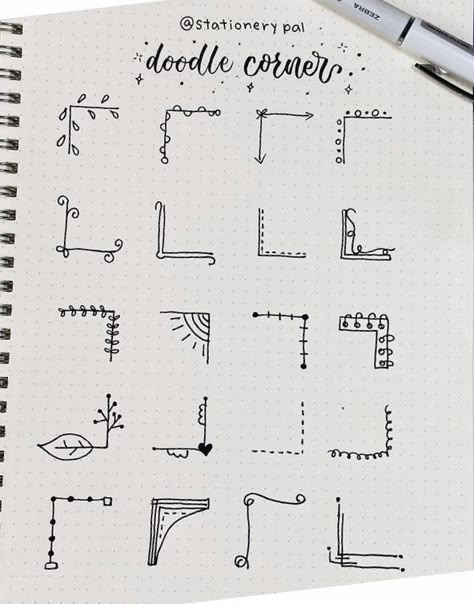 @stationery pal
doodle corner
ZEBRA